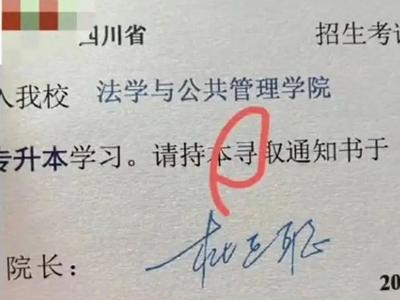 四川省 招生考
入我校 法学与公共管理学院
专升本学习。请持本寻取通知书于
院长：
20